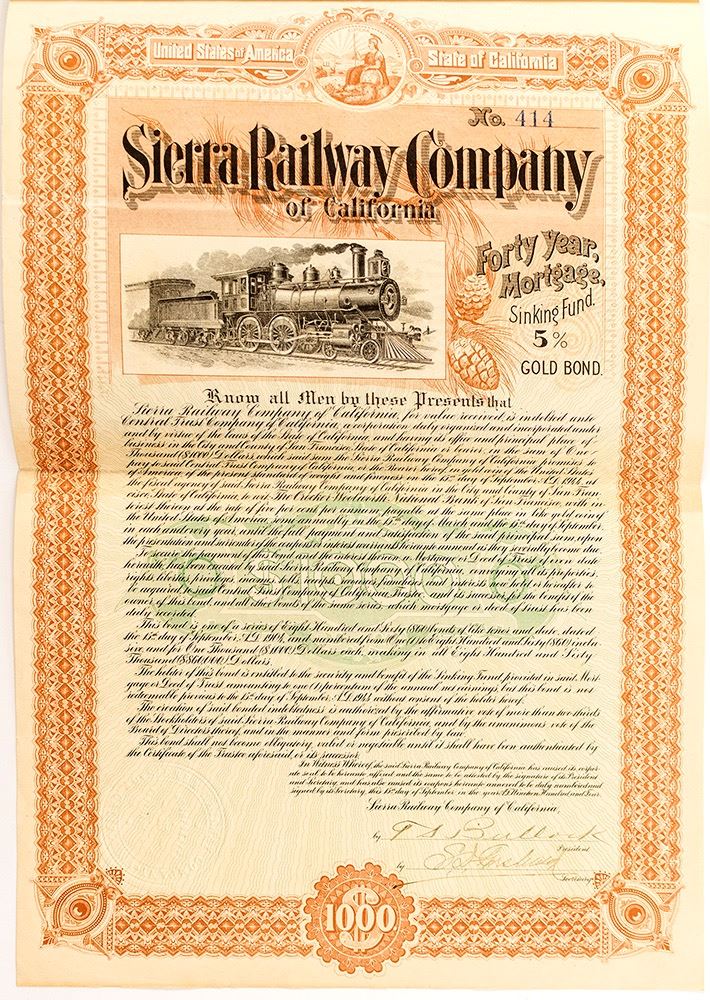 United States of America
State of California
No. 414
Sierra Railway Company
of California
Forty Year,
Mortgage,
Sinking Fund.
5%
GOLD BOND.
Know all Men by these Presents that
Sierra Railway Company of California, for value received is indebted unto
Central Trust Company of California, a corporation duly organized and incorporated under
and by virtue of the laws of the State of California, and having its office and principal place of
business in the City and County of San Francisco, State of California or bearer, in the sum of One
Thousand ($1000) Dollars, which said sum the Sierra Railway Company of California promises to
pay to said Central Trust Company of California, or the Bearer hereof, in gold coin of the United States
of America of the present standard of weight and fineness on the 15th day of September A.D. 1944, at
the fiscal agency of said Sierra Railway Company of California in the City and County of San Fran-
cisco, State of California, to wit: The Crocker Woolworth National Bank of San Francisco, with in-
terest thereon at the rate of five per cent per annum, payable at the same place in like gold coin of
the United States of America, semi annually on the 15th day of March and the 15th day of September
in each and every year, until the full payment and satisfaction of the said principal sum, upon
the presentation and surrender of the coupons or interest warrants hereunto annexed as they severally become due.
To secure the payment of this bond and the interest thereon, a Mortgage or Deed of Trust of even date
herewith, has been executed by said Sierra Railway Company of California, conveying all its properties,
rights, liberties, privileges, incomes, tolls, receipts, revenues, franchises, and interests now held or hereafter to
be acquired, to said Central Trust Company of California, Trustee, and its successors, for the benefit of the
owner of this bond, and all other bonds of the same series, which mortgage or deed of trust has been
duly recorded.
This bond is one of a series of Eight Hundred and Sixty (860) bonds of like tenor and date, dated
the 15th day of September A.D. 1904, and numbered from One (1) to Eight Hundred and Sixty (860) inclu-
sive and for One Thousand ($1000) Dollars each, making in all Eight Hundred and Sixty
Thousand ($860000) Dollars.
The holder of this bond is entitled to the security and benefit of the Sinking Fund provided in said Mort-
gage or Deed of Trust amounting to one (1) per centum of the annual net earnings, but this bond is not
redeemable previous to the 15th day of September, A.D. 1943 without consent of the holder hereof.
The creation of said bonded indebtedness is authorized by the affirmative vote of more than two thirds
of the Stockholders of said Sierra Railway Company of California, and by the unanimous vote of the
Board of Directors thereof, and in the manner and form prescribed by law.
This bond shall not become obligatory, valid or negotiable until it shall have been authenticated by
the Certificate of the Trustee aforesaid, or its successor.
In Witness Whereof, the said Sierra Railway Company of California has caused its corpor-
ate seal to be hereunto affixed, and the same to be attested by the signature of its President
and Secretary, and has also caused its coupons hereunto annexed to be duly numbered and
signed by its Secretary, this 15th day of September, in the year A.D. Nineteen Hundred and Four.
Sierra Railway Company of California,
by T S Bullock
President
by
Secretary
1000